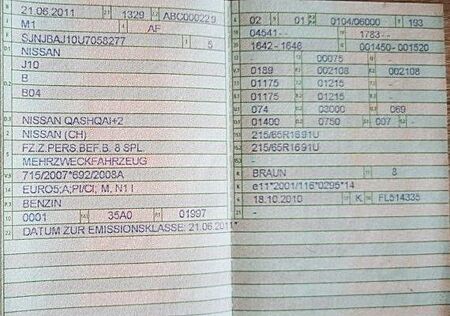 21.06.2011 1329 ABC000229
M1 AF
SJNJBAJ10U7058277 5
NISSAN
J10
B
B04
NISSAN QASHQAI+2
NISSAN (CH)
FZ.Z.PERS.BEF.B. 8 SPL.
MEHRZWECKFAHRZEUG
715/2007*692/2008A
EURO5;A;PI/CI, M, N1 I
BENZIN
0001 35A0 01997
DATUM ZUR EMISSIONSKLASSE: 21.06.2011*
02 01 0104/06000 193
04541-- 1783--
1642-1646 001450-001520
00075 --
0189 002108 002108
01175 01215 -
01175 01215 -
074 03000 069
01400 0750 007 -
215/65R16 91U
215/65R16 91U
-
BRAUN 8
e11*2001/116*0295*14
18.10.2010 K FL514335
-